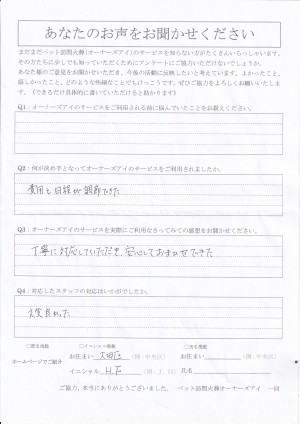 あなたのお声をお聞かせください
まだまだペット訪問火葬(オーナーズアイ)のサービスを知らない方がたくさんいらっしゃいます。
その方たちに少しでも知っていただくためにアンケートにご協力いただけないでしょうか。
あなた様のご意見をお聞かせいただき、今後の活動に反映したいと考えています。よかったこと、
嬉しかったこと、どのような些細なことでもけっこうです。ぜひ協力をよろしくお願いいたしま
す。(できるだけ具体的に書いていただけると助かります)
Q1:オーナーズアイのサービスをご利用される前に悩んでいたことをお教えください。
Q2:何が決め手となってオーナーズアイのサービスをご利用されましたか。
費用と日程が調節できた
Q3:オーナーズアイのサービスを実際にご利用なさってみての感想をお聞かせください。
丁寧に対応していただき、安心しておまかせできた
Q4:対応したスタッフの対応はいかがでしたか。
大変良かった
□匿名掲載 □イニシャル掲載 □実名掲載
ホームページでご紹介 お住まい 大田区 (例:中央区) お住まい (例:中央区)
イニシャル (例:J.H) 氏名
ご協力、本当にありがとうございました。 ペット訪問火葬オーナーズアイ 一同